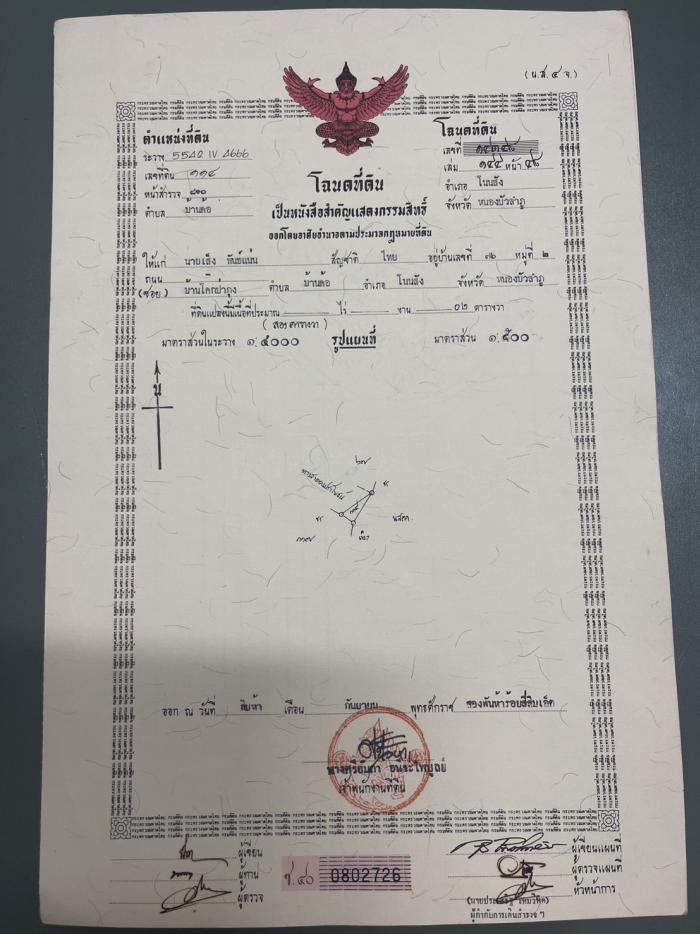 (น.ส. ๔ จ.)
ตำแหน่งที่ดิน
ระวาง 5542 IV 4666
เลขที่ดิน ๑๑๔
หน้าสำรวจ
ตำบล บ้านค้อ
โฉนดที่ดิน
เลขที่
เล่ม ๑๔๔ หน้า ๔๘
อำเภอ โนนสัง
จังหวัด หนองบัวลำภู
โฉนดที่ดิน
เป็นหนังสือสำคัญแสดงกรรมสิทธิ์
ออกโดยอาศัยอำนาจตามประมวลกฎหมายที่ดิน
ให้แก่ นายเส็ง พันธ์แน่น สัญชาติ ไทย อยู่บ้านเลขที่ ๓๖ หมู่ที่ ๒
ถนน
(ซอย) บ้านโคกป่ากุง ตำบล บ้านค้อ อำเภอ โนนสัง จังหวัด หนองบัวลำภู
ที่ดินแปลงนี้มีเนื้อที่ประมาณ ไร่ งาน ๐๒ ตารางวา
(สองตารางวา)
มาตราส่วนในระวาง ๑:๔๐๐๐ รูปแผนที่ มาตราส่วน ๑:๕๐๐
น
๖๗
นสดก.
ออก ณ วันที่ สิบห้า เดือน กันยายน พุทธศักราช สองพันห้าร้อยสี่สิบเอ็ด
เจ้าพนักงานที่ดิน
ผู้เขียน
ผู้ทาน
ผู้ตรวจ
ข.๔๐ 0802726
ผู้เขียนแผนที่
ผู้ตรวจแผนที่
หัวหน้าการ
ผู้กำกับการเดินสำรวจ ฯ